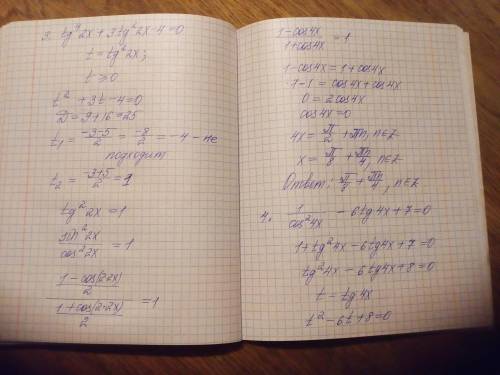 3. tg⁴2x+3tg²2x-4=0
t=tg²2x;
t≥0
t²+3t-4=0
D=9+16=25
t₁=(-3-5)/2=-8/2=-4-не
подходит
t₂=(-3+5)/2=1
tg²2x=1
sin²2x/cos²2x=1
((1-cos(2·2x))/2)/((1+cos(2·2x))/2)=1
(1-cos4x)/(1+cos4x)=1
1-cos4x=1+cos4x
1-1=cos4x+cos4x
0=2cos4x
cos4x=0
4x=π/2+πn, n∈Z
x=π/8+πn/4, n∈Z
Ответ: π/8+πn/4, n∈Z
4. 1/cos²4x-6tg4x+7=0
1+tg²4x-6tg4x+7=0
tg²4x-6tg4x+8=0
t=tg4x
t²-6t+8=0